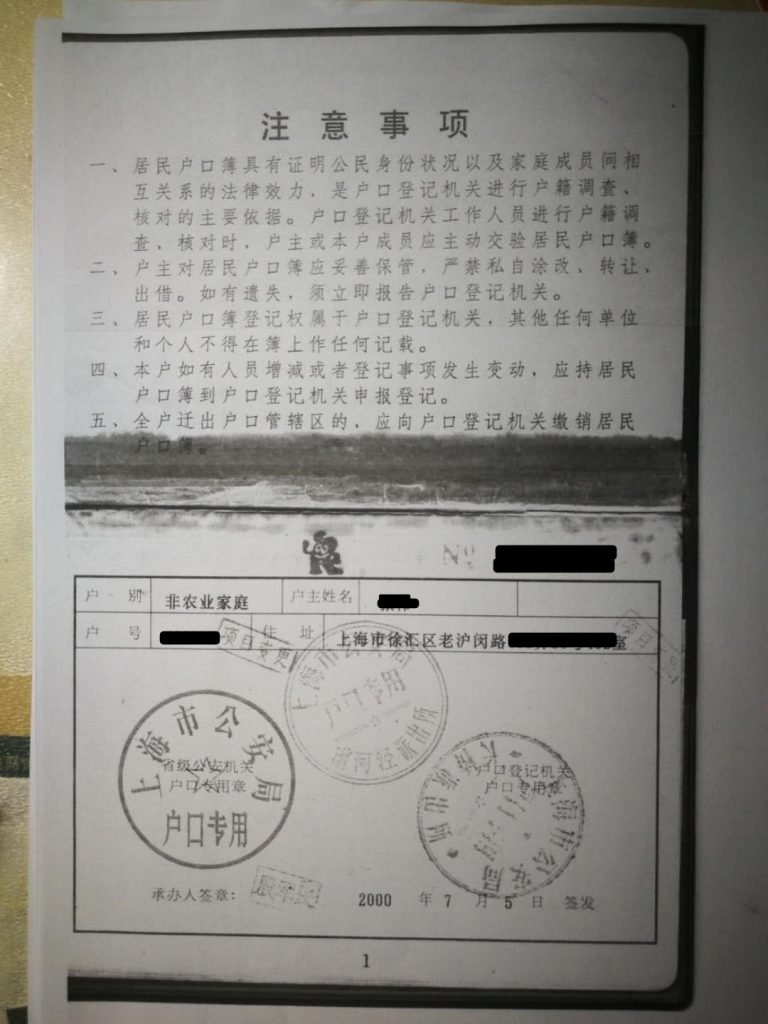 注意事项
一、居民户口簿具有证明公民身份状况以及家庭成员间相
互关系的法律效力，是户口登记机关进行户籍调查、
核对的主要依据。户口登记机关工作人员进行户籍调
查、核对时，户主或本户成员应主动交验居民户口簿。
二、户主对居民户口簿应妥善保管，严禁私自涂改、转让、
出借。如有遗失，须立即报告户口登记机关。
三、居民户口簿登记权属于户口登记机关，其他任何单位
和个人不得在簿上作任何记载。
四、本户如有人员增减或者登记事项发生变动，应持居民
户口簿到户口登记机关申报登记。
五、全户迁出户口管辖区的，应向户口登记机关缴销居民
户口簿。
户别 非农业家庭 户主姓名
户号 住址 上海市徐汇区老沪闵路 室
项目变更
上海市公安局
户口专用
漕河泾派出所
上海市公安局
省级公安机关
户口专用章
户口专用
户口登记机关
户口专用章
上海市公安局
承办人签章： 2000 年 7 月 5 日 签发
1